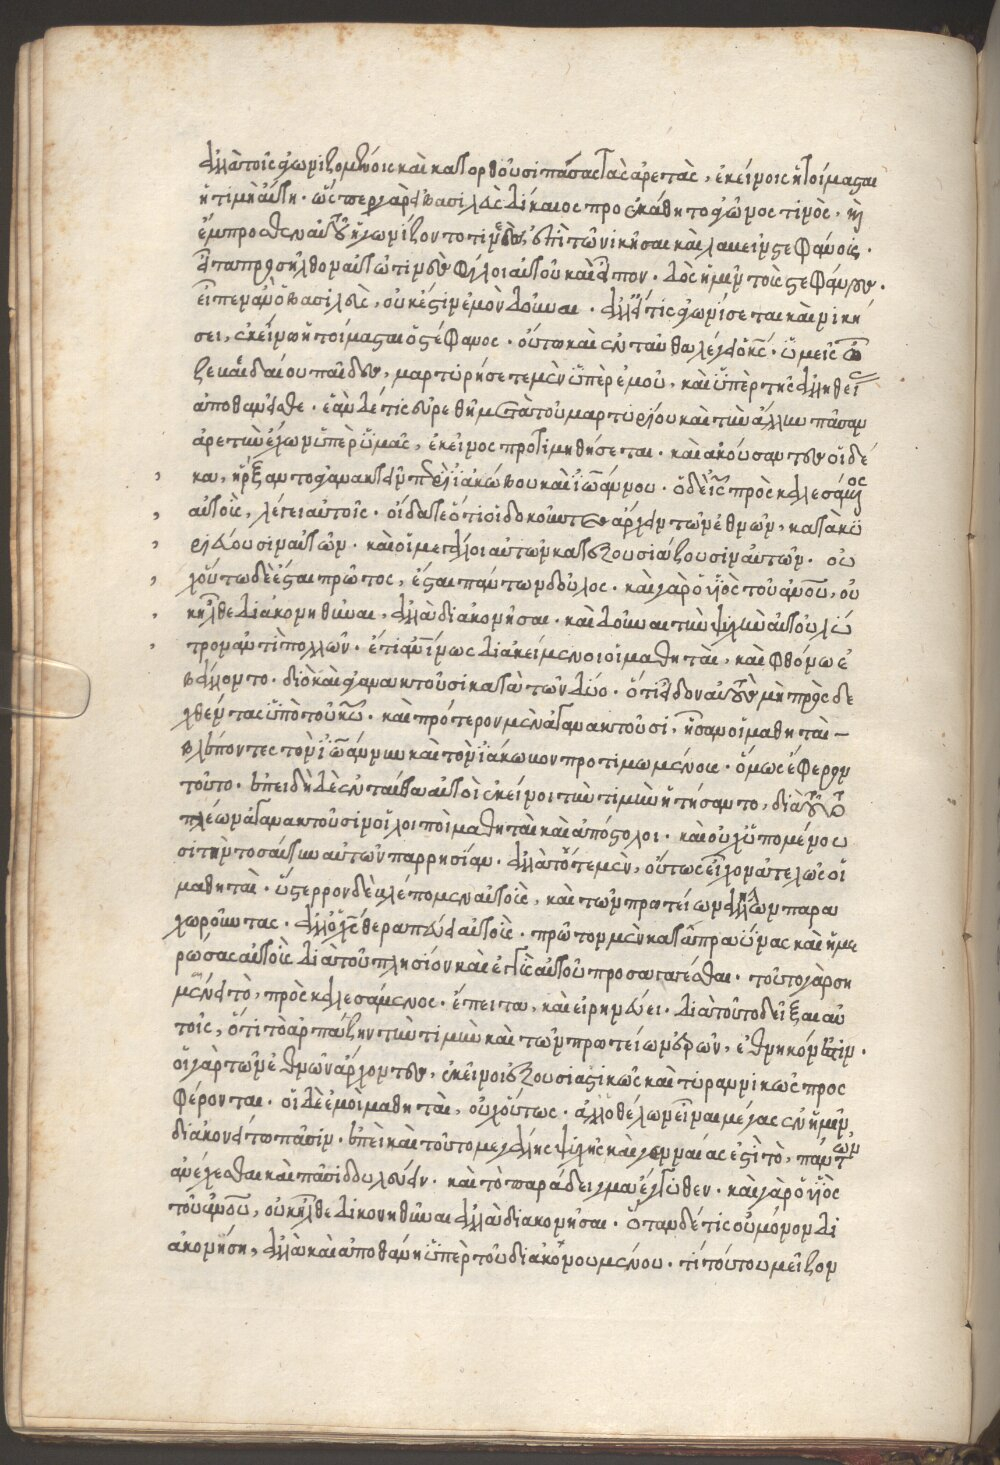 ἀλλὰ τοῖς ἀγωνιζομένοις καὶ κατορθοῦσι πάσας τὰς ἀρετὰς, ἐκείνοις ἡτοίμασται
ἡ τιμὴ αὕτη. ὥσπερ γὰρ εἰ βασιλεὺς δίκαιος προεκάθητο ἀγῶνος τινὸς, καὶ
ἔμπροσθεν αὐτοῦ ἠγωνίζοντο τινὲς, ἐπὶ τῷ νικῆσαι καὶ λαβεῖν στεφάνους.
εἶτα προσῆλθον αὐτῷ τινὲς φίλοι αὐτοῦ καὶ εἶπον. δὸς ἡμῖν τοὺς στεφάνους.
εἶπεν ἂν ὁ βασιλεὺς, οὐκ ἔστιν ἐμὸν δοῦναι. ἀλλ' εἴτις ἀγωνίσεται καὶ νική
σει, ἐκείνῳ ἡτοίμασται ὁ στέφανος. οὕτω καὶ ἐνταῦθα λέγει ὁ κς. ὑμεῖς ὦ
ζεβεδαίου παῖδες, μαρτυρήσετε μὲν ὑπὲρ ἐμοῦ, καὶ ὑπὲρ τῆς ἀληθείας
ἀποθανεῖσθε. ἐὰν δέ τις εὑρεθῇ μετὰ τοῦ μαρτυρίου καὶ τὴν ἄλλην πᾶσαν
ἀρετὴν ἔχων ὑπὲρ ὑμᾶς, ἐκεῖνος προτιμηθήσεται. καὶ ἀκούσαντες οἱ δέ
κα, ἤρξαντο ἀγανακτεῖν περὶ ἰακώβου καὶ ἰωάννου. ὁ δὲ ις προσκαλεσάμενος
αὐτοὺς, λέγει αὐτοῖς. οἴδατε ὅτι οἱ δοκοῦντες ἄρχειν τῶν ἐθνῶν, κατακυ
ριεύουσιν αὐτῶν. καὶ οἱ μεγάλοι αὐτῶν κατεξουσιάζουσιν αὐτῶν. οὐ
χ' οὕτω δὲ ἔσται πρῶτος, ἔσται πάντων δοῦλος. καὶ γὰρ ὁ υἱὸς τοῦ ανου, οὐ
κ ἦλθε διακονηθῆναι, ἀλλὰ διακονῆσαι. καὶ δοῦναι τὴν ψυχὴν αὐτοῦ λύ
τρον ἀντὶ πολλῶν. ἔτι ανίνως διακείμενοι οἱ μαθηταὶ, καὶ φθόνῳ ἐ
βάλλοντο. διὸ καὶ ἀγανακτοῦσι κατὰ τῶν δύο. ὅτι εἶδον αὐτοὺς μὴ προσδε
χθέντας ὑπὸ τοῦ κυ. καὶ πρότερον μὲν ἀγανακτοῦσι, ἦσαν οἱ μαθηταὶ
βλέποντες τὸν ἰωάννην καὶ τὸν ἰάκωβον προτιμωμένους. ὅμως ἔφερον
τοῦτο. ἐπειδὴ δὲ ἐνταῦθα αὐτοὶ ἐκεῖνοι τὴν τιμὴν ᾔτησαντο, διὰ τοῦτο
πλέον ἀγανακτοῦσιν οἱ λοιποὶ μαθηταὶ καὶ ἀπόστολοι. καὶ οὐχ' ὑπομένου
σι τὴν τοσαύτην αὐτῶν παρρησίαν. ἀλλὰ τότε μὲν, οὕτως εἶχον ἀτελῶς οἱ
μαθηταὶ. ὕστερρον δὲ βλέπομεν αὐτοὺς, καὶ τῶν πρωτείων ἀλλήλων παρα
χωροῦντας. ἀλλ' ὁ χς θεραπεύει αὐτοὺς. πρῶτον μὲν καταπραΰνας καὶ ἡμε
ρώσας αὐτοὺς διὰ τοῦ πλησίον καὶ ἐγγὺς αὐτοῦ προσαγαγέσθαι. τοῦτο γὰρ ση
μαίνει τὸ, προσκαλεσάμενος. ἔπειτα, καὶ εἰρηνεύει. διὰ τοῦτο δεῖξαι αὐ
τοῖς, ὅτι τὸ ἁρπάζην τὴν τιμὴν καὶ τῶν πρωτείων ἐρᾶν, ἐθνηκόν ἐστιν.
οἱ γὰρ τῶν ἐθνῶν ἄρχοντες, ἐκεῖνοι ἐξουσιαστικῶς καὶ τυραννικῶς προσ
φέρονται. οἱ δὲ ἐμοὶ μαθηταὶ, οὐχ' οὕτως. ἀλλ' ὁ θέλων εἶναι μέγας ἐν ἡμῖν,
διακονείτω πᾶσιν. ἐπεὶ καὶ τοῦτο μεγάλης ψυχῆς καὶ γενναίας ἐστὶ τὸ, πάντων
ἀνέχεσθαι καὶ πᾶσι δουλεύειν. καὶ τὸ παράδειγμα ἐγγύθεν. καὶ γὰρ ὁ υἱὸς
τοῦ ανου, οὐκ ἦλθε δικονηθῆναι ἀλλὰ διακονῆσαι. ὅταν δέ τις οὐ μόνον δι
ακονήση, ἀλλὰ καὶ ἀποθάνη ὑπὲρ τοῦ διακονουμένου. τί τούτου μεῖζον